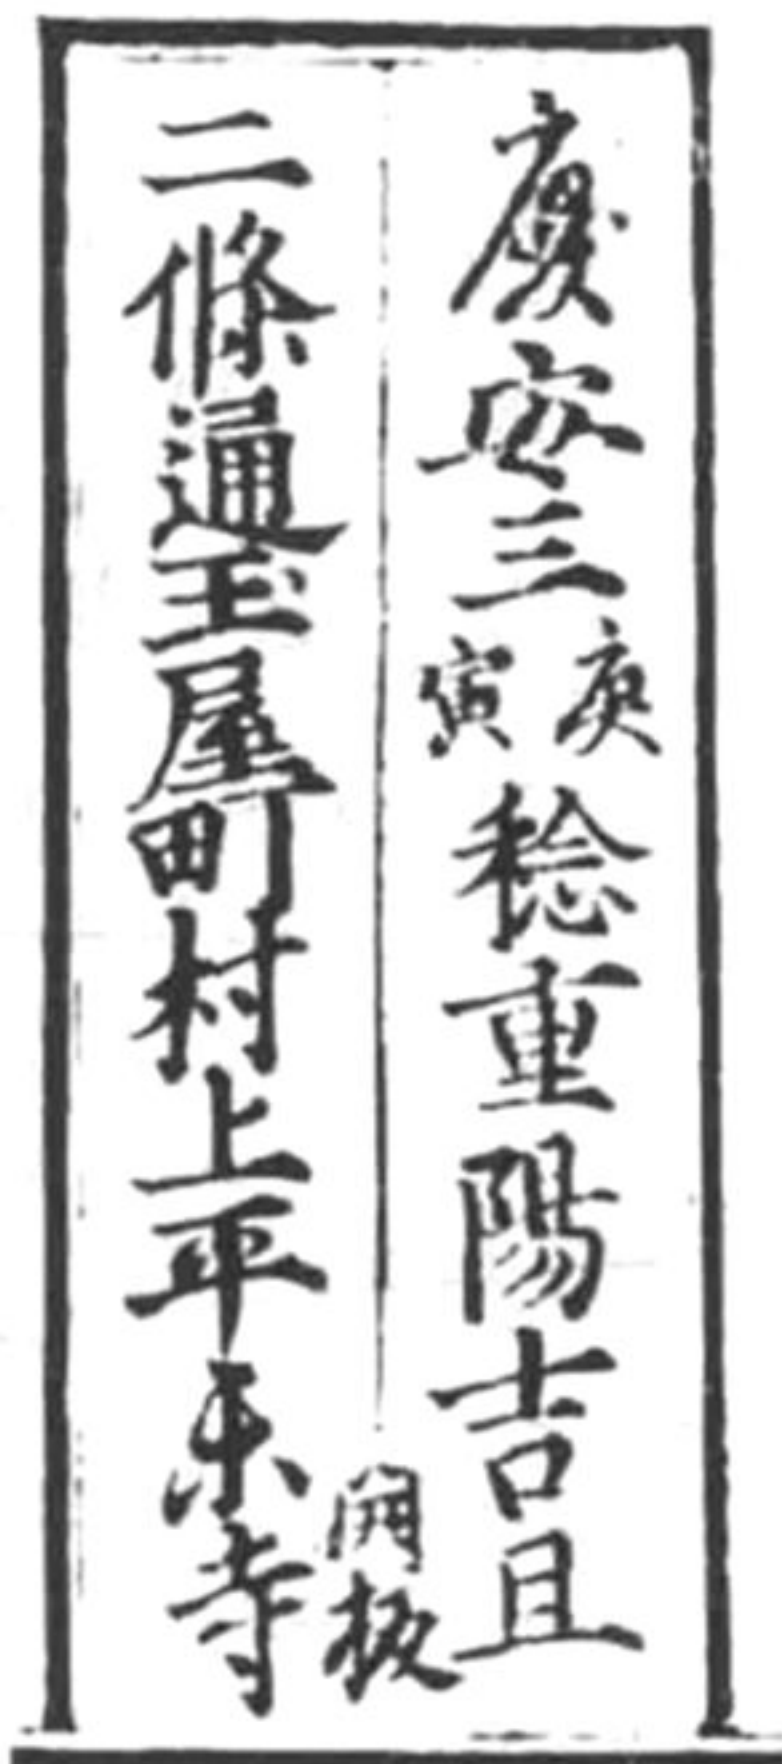 慶安三庚寅稔重陽吉旦
二條通玉屋町村上平樂寺
開板